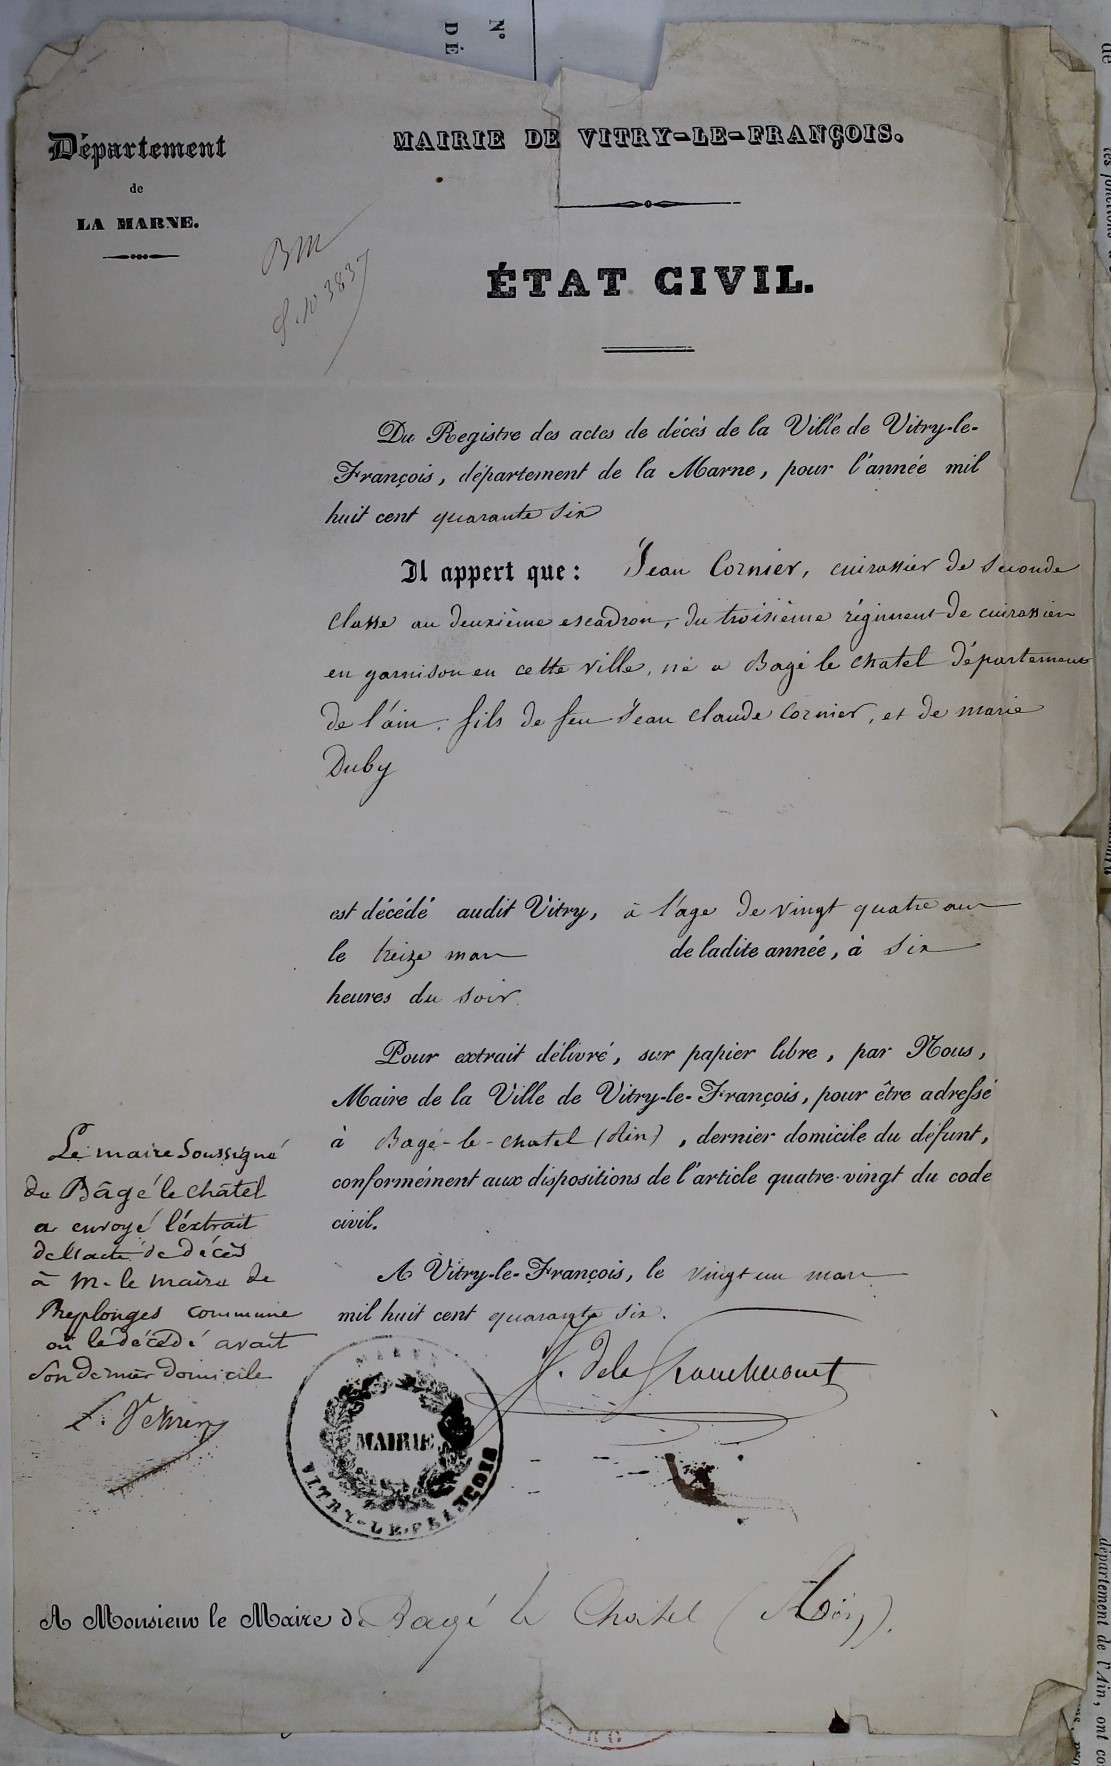 N°
DÉ
Département
de
LA MARNE.
MAIRIE DE VITRY-LE-FRANÇOIS.
ÉTAT CIVIL.
Du Registre des actes de décès de la Ville de Vitry-le-
François, département de la Marne, pour l'année mil
huit cent quarante Six
Il appert que : Jean Cornier, cuirassier de Seconde
Classe au deuxième escadron, du troisième régiment de cuirassiers
en garnison en cette ville, né a Bagé le chatel Département
de l'ain, fils de feu Jean Claude Cornier, et de marie
Duby
est décédé audit Vitry, à l'age de vingt quatre ans
le treize mars de ladite année, à Six
heures du soir.
Pour extrait délivré, sur papier libre, par Nous,
Maire de la Ville de Vitry-le-François, pour être adressé
à Bagé-le-chatel (Ain), dernier domicile du défunt,
conformément aux dispositions de l'article quatre-vingt du code
civil.
A Vitry-le-François, le vingt un mars
mil huit cent quarante Six.
Le maire Soussigné
de Bâgé le châtel
a envoyé l'éxtrait
de l'acte de décès
à M. le maire de
Replonges commune
où le décédé avait
Son dernier domicile
MAIRIE
VITRY-LE-FRANÇOIS
A Monsieur le Maire de Bagé le Chatel (Ain).
département de l'Ain, ont co